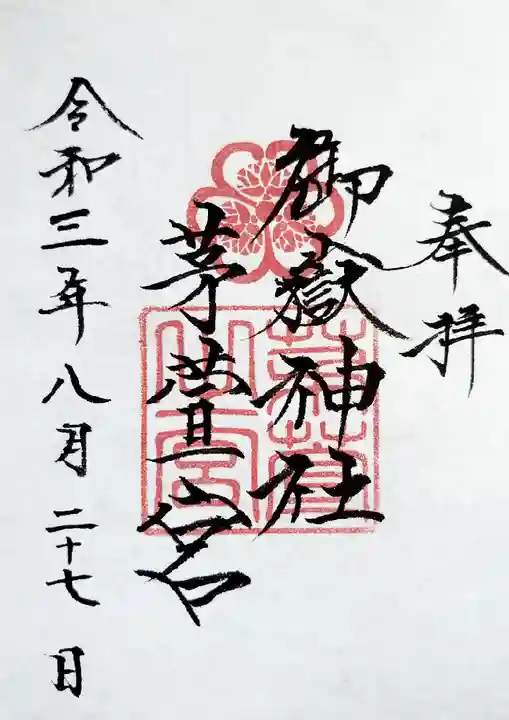 奉拝
御嶽神社
茅萱宮
令和三年八月二十七日